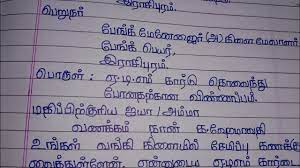 இராசிபுரம்.
பெறுநர்
பேங்க் மேனேஜர் (அ) கிளை மேலாளர்
பேங்க் பெயர்,
இராசிபுரம்.
பொருள் : ஏ.டி.எம் கார்டு தொலைந்து
போனதற்கான விண்ணப்பம்.
மதிப்பிற்குரிய ஐயா / அம்மா
வணக்கம் நான்
உங்கள் வங்கி கிளையில் சேமிப்பு கணக்கு
வைத்துள்ளேன். என்னுடைய ஏ.டி.எம் கார்டை